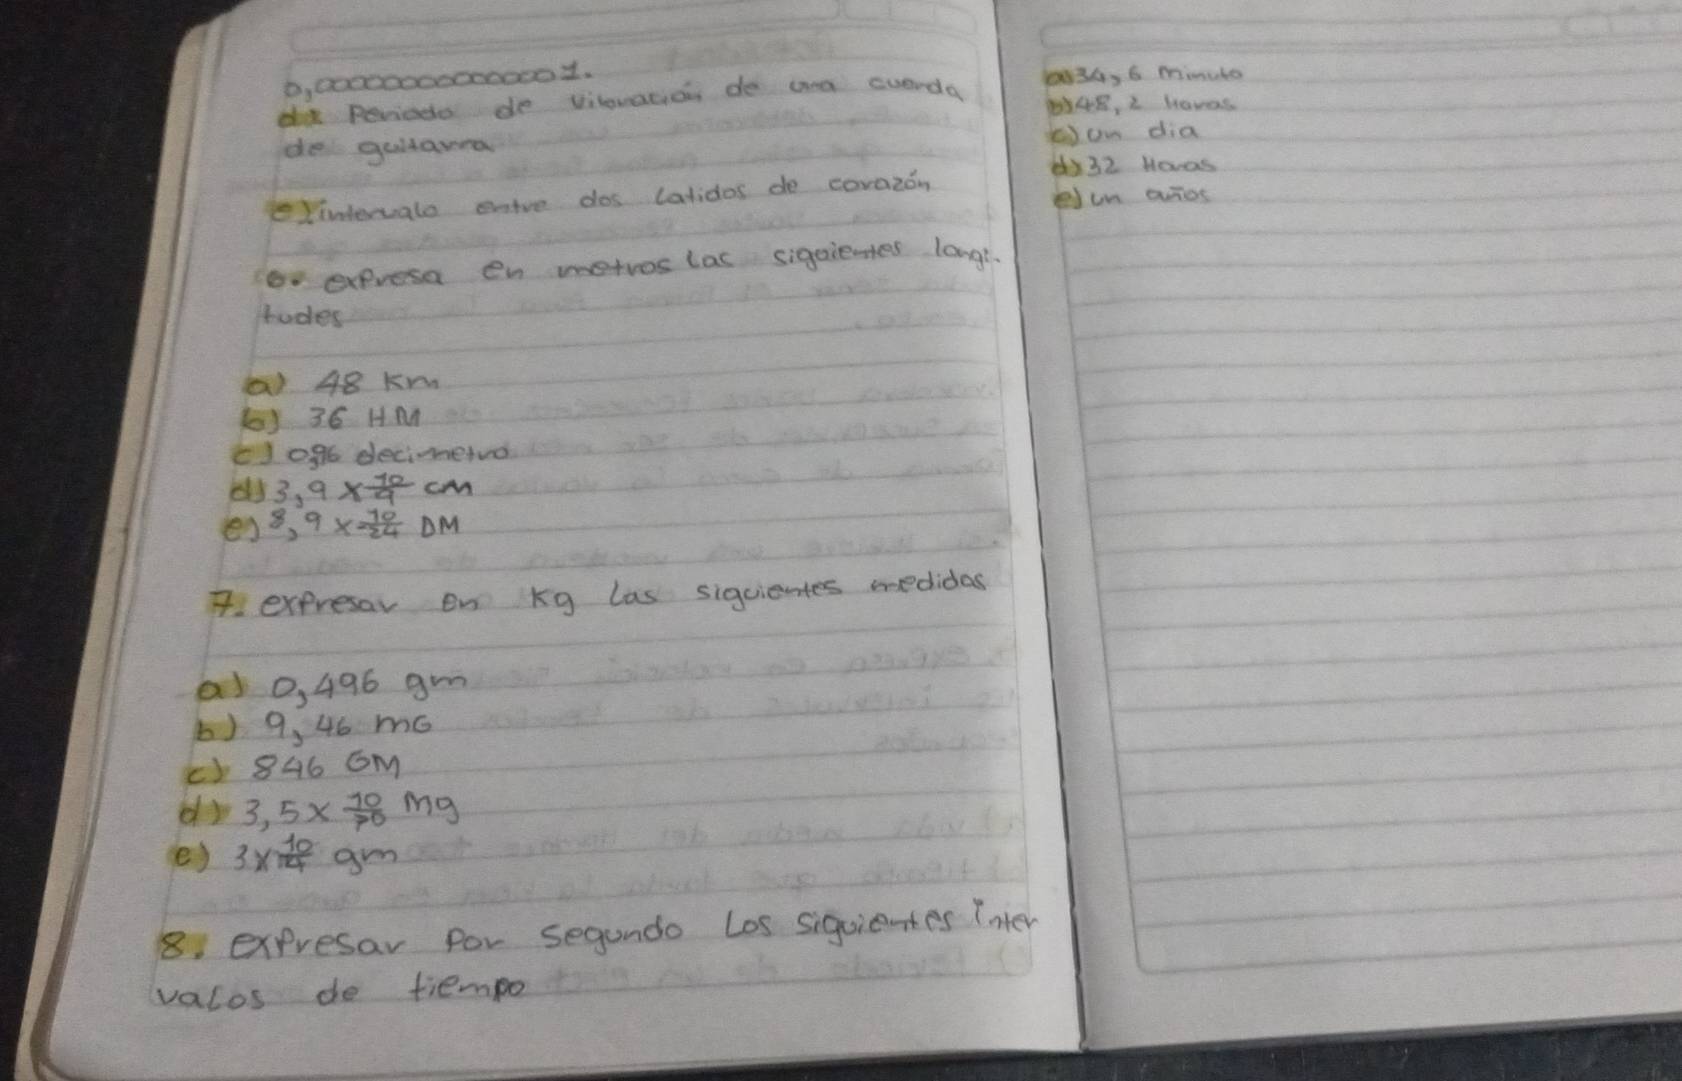 0,0000000000000001.
d) Periodo de vibración de una cuerda
de guitarra
e) intervalo entre dos latidos de corazón
6. expresa en metros las siguientes longi-
tudes
a) 48 Km
b) 36 HM
c) 0,96 decimetro
d) 3,9 x 10/4 cm
e) 8,9 x 10/-24 DM
7. expresar en Kg las siguientes medidas
a) 0,496 gm
b) 9,46 mG
c) 846 GM
d) 3,5 x 10/76 Mg
e) 3 x 10/14 gm
8. expresar por segundo Los siguientes inter
valos de tiempo
a) 34,6 minuto
b) 48,2 Horas
c) un dia
d) 32 Horas
e) un años